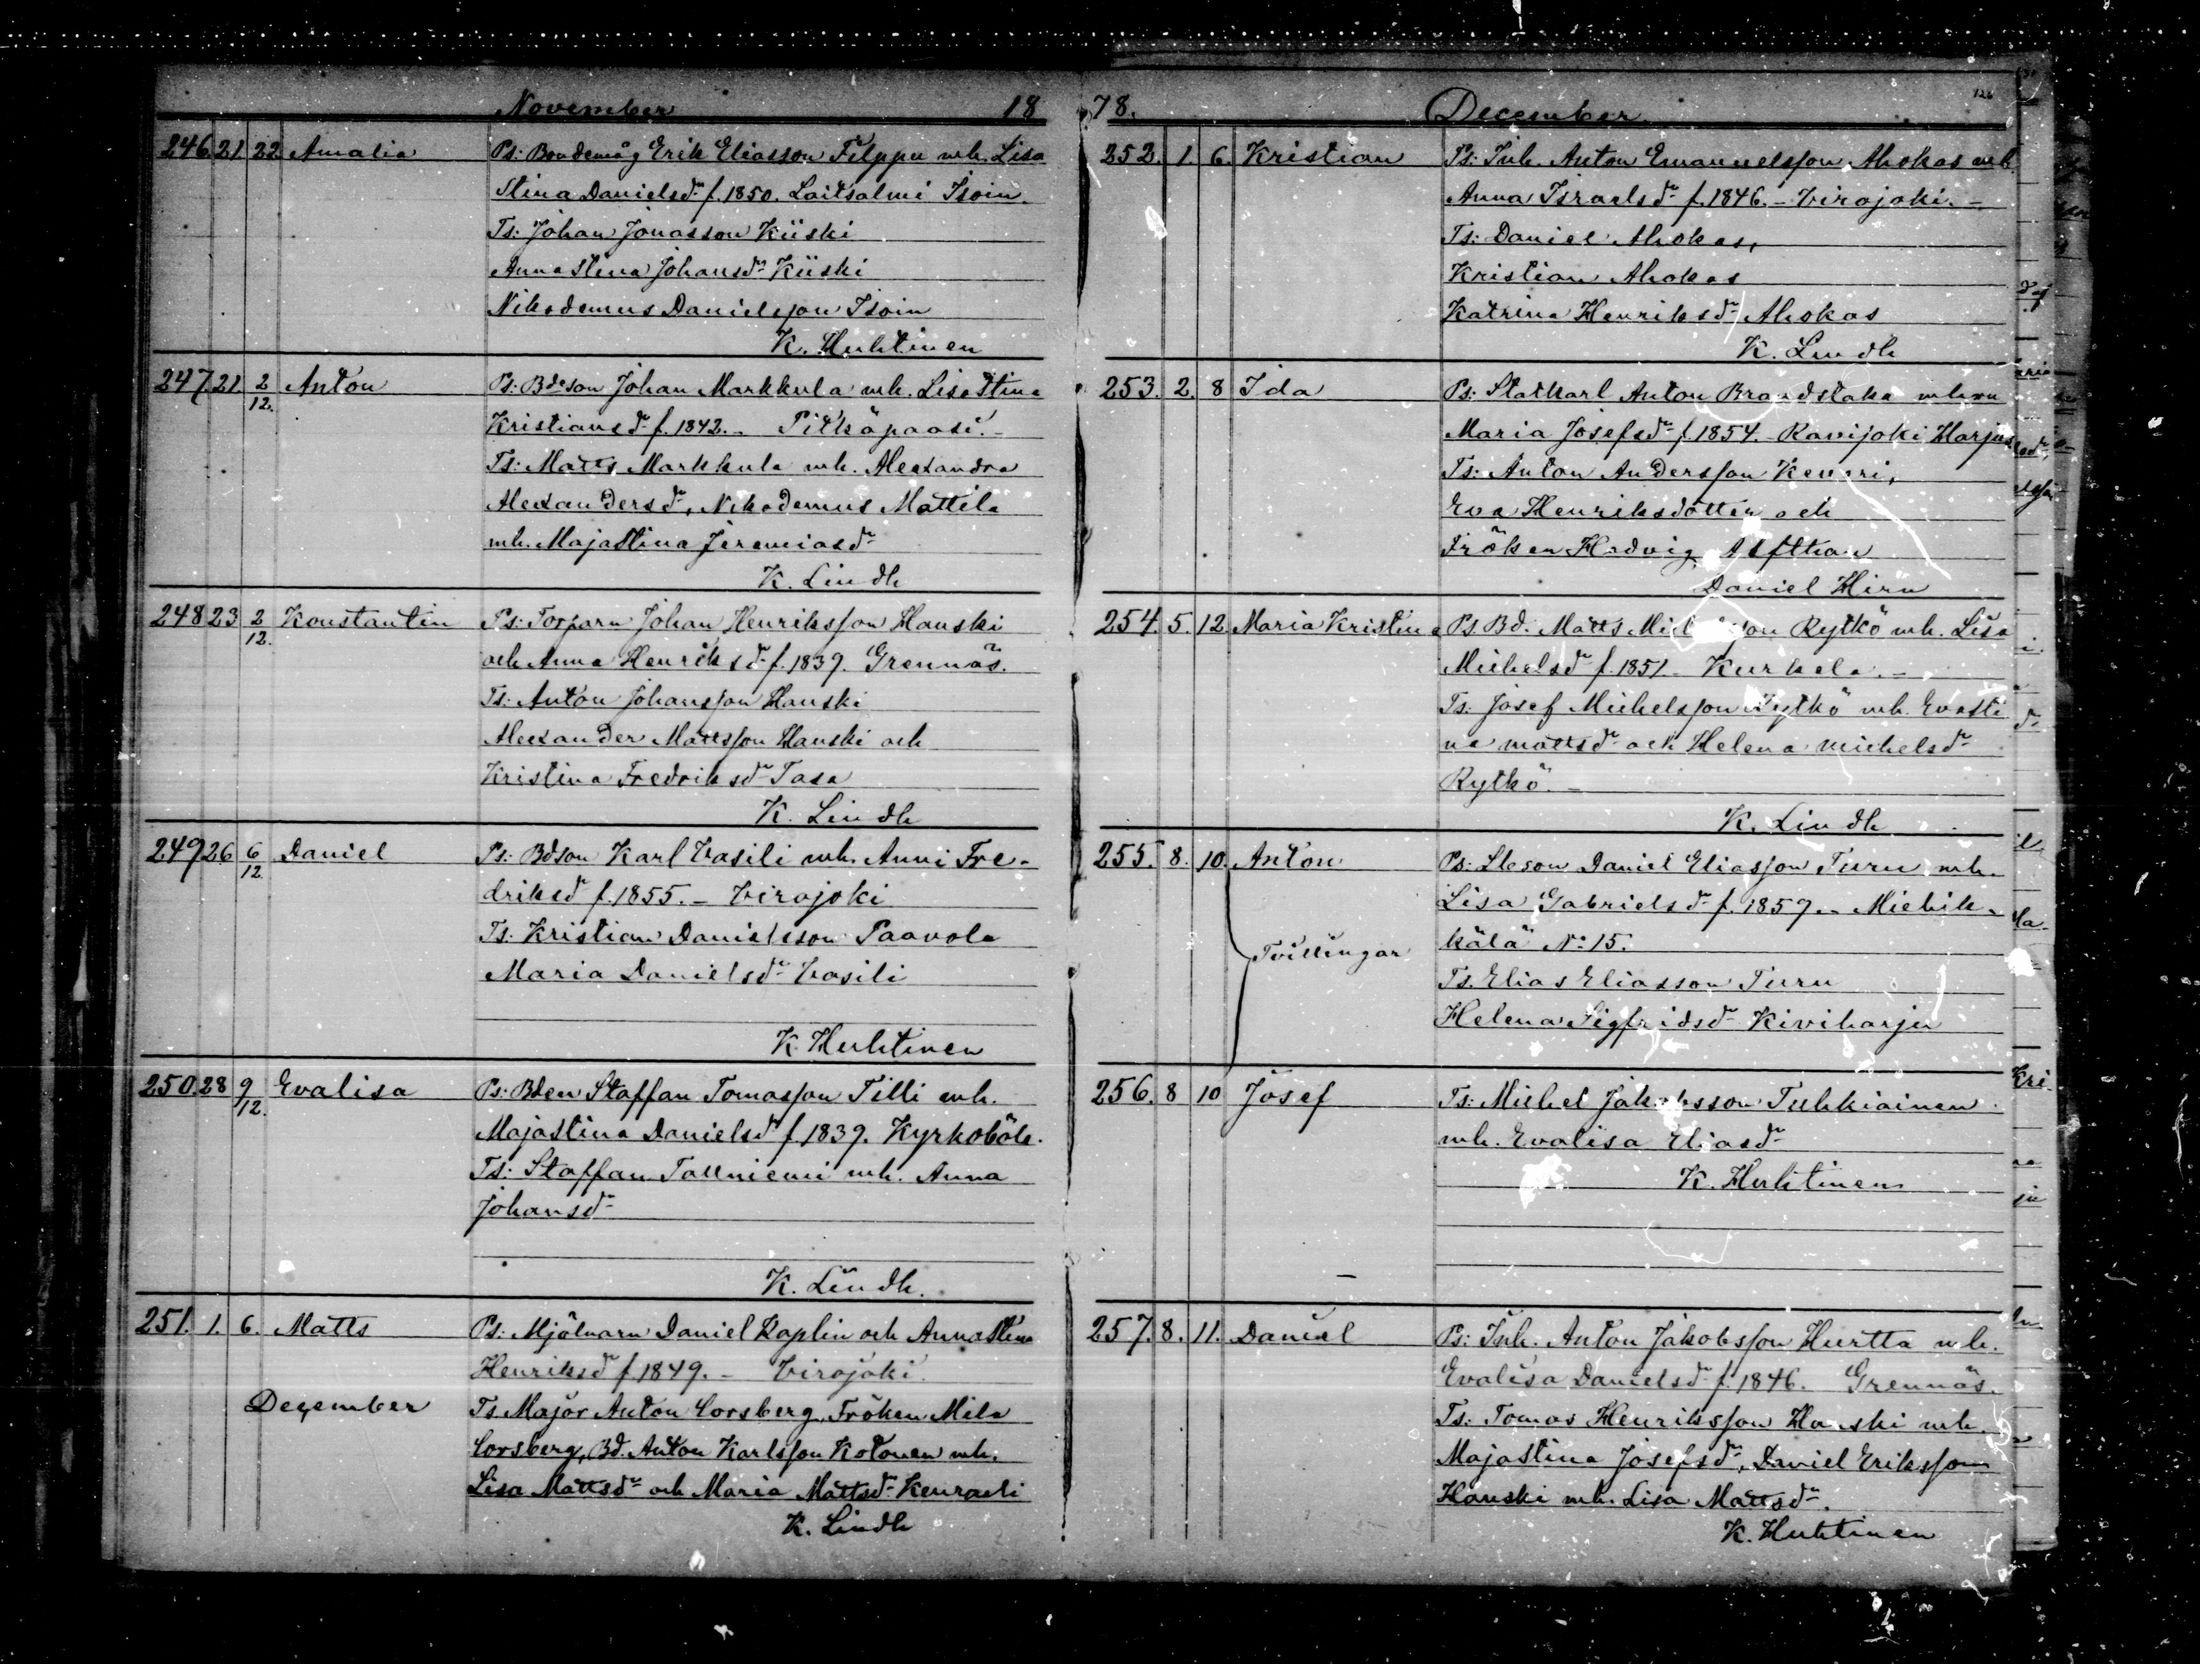 November 18
246. 21 22 Amalia Ps: Bondemåg Erik Eliasson Filppu mh. Lisa
Stina Danielsdr f. 1850. Laitsalmi Isoin.
Ts: Johan Jonasson Kiiski
Anna Stina Johansdr Kiiski
Nikodemus Danielsson Isoin
K. Huhtinen
247 21 2/12. Anton Ps: Bdeson Johan Markkula mh. Lisastina
Kristiansdr f. 1842. – Pitkäpaasi. –
Ts: Matts Markkula mh. Alexandra
Alexandersdr, Nikodemus Mattila
mh. Majastina Jeremiasdr
K. Lindh
248 23 2/12. Konstantin Ps: Torparn Johan Henriksson Hauski
och Anna Henriksdr f. 1839. Grennäs.
Ts: Anton Johansson Hauski
Alexander Mattsson Hauski och
Kristina Fredriksdr Tasa
K. Lindh
249 26 6/12. Daniel Ps: Bdson Karl Vasili mh. Anni Fre-
driksd f. 1855. – Virojoki
Ts: Kristian Danielsson Paavola
Maria Danielsdr Vasili
K. Huhtinen
250. 28 9/12. Evalisa Ps: Bden Staffan Tomasson Tilli mh.
Majastina Danielsdr f. 1839. Kyrkoböle.
Ts: Staffan Tallniemi mh. Anna
Johansdr
K. Lindh.
251. 1. 6. Matts Ps: Mjölnarn Daniel Kaplin och AnnaStina
Henriksd f. 1849. – Virojoki.
December Ts Major Anton Corsberg, Fröken Mila
Corsberg, Bd. Anton Karlsson Kotonen mh.
Lisa Mattsdr och Maria Mattsdr
K. Lindh
78. December
252. 1. 6. Kristian Ps: Inh. Anton Emanuelsson Ahokas mh
Anna Israelsdr f. 1846. – Virojoki. –
Ts: Daniel Ahokas,
Kristian Ahokas
Katrina Henriksdr Ahokas
K. Lindh
253. 2. 8 Ida Ps: Statkarl Anton Brandstaka
Maria Josefsdr f. 1854. – Ravijoki
Ts: Anton Andersson
Eva Henriksdotter och
Fröken Hedvig Alfthan
Daniel Hirn
254. 5. 12. Maria Kristina Ps Bd. Matts Rytkö mh. Lisa
Michelsdr f. 1851 – Kurkela. –
Ts: Josef Michelsson Rytkö mh. Evasti
na Mattsdr och Helena Michelsdr
Rytkö. –
K. Lindh
255. 8. 10. Anton Ps: Daniel Eliasson Turu mh.
Lisa Gabrielsdr f. 1859. – Miehik-
Tvillingar kälä No 15.
Ts. Elias Eliasson Turu
Helena Sigfridsdr Kiviharju
256. 8 10 Josef Ts: Michel Jakobsson Tuhkiainen
mh. Evalisa Eliasdr
K. Huhtinen
257. 8. 11. Daniel Ps: Inh. Anton Jakobsson Hurtta mh.
Evalisa Danielsdr f. 1846. Grennäs.
Ts: Tomas Henriksson Hauski mh.
Majastina Josefsdr, Daniel Eriksson
Hauski mh. Lisa Mattsdr.
K. Huhtinen